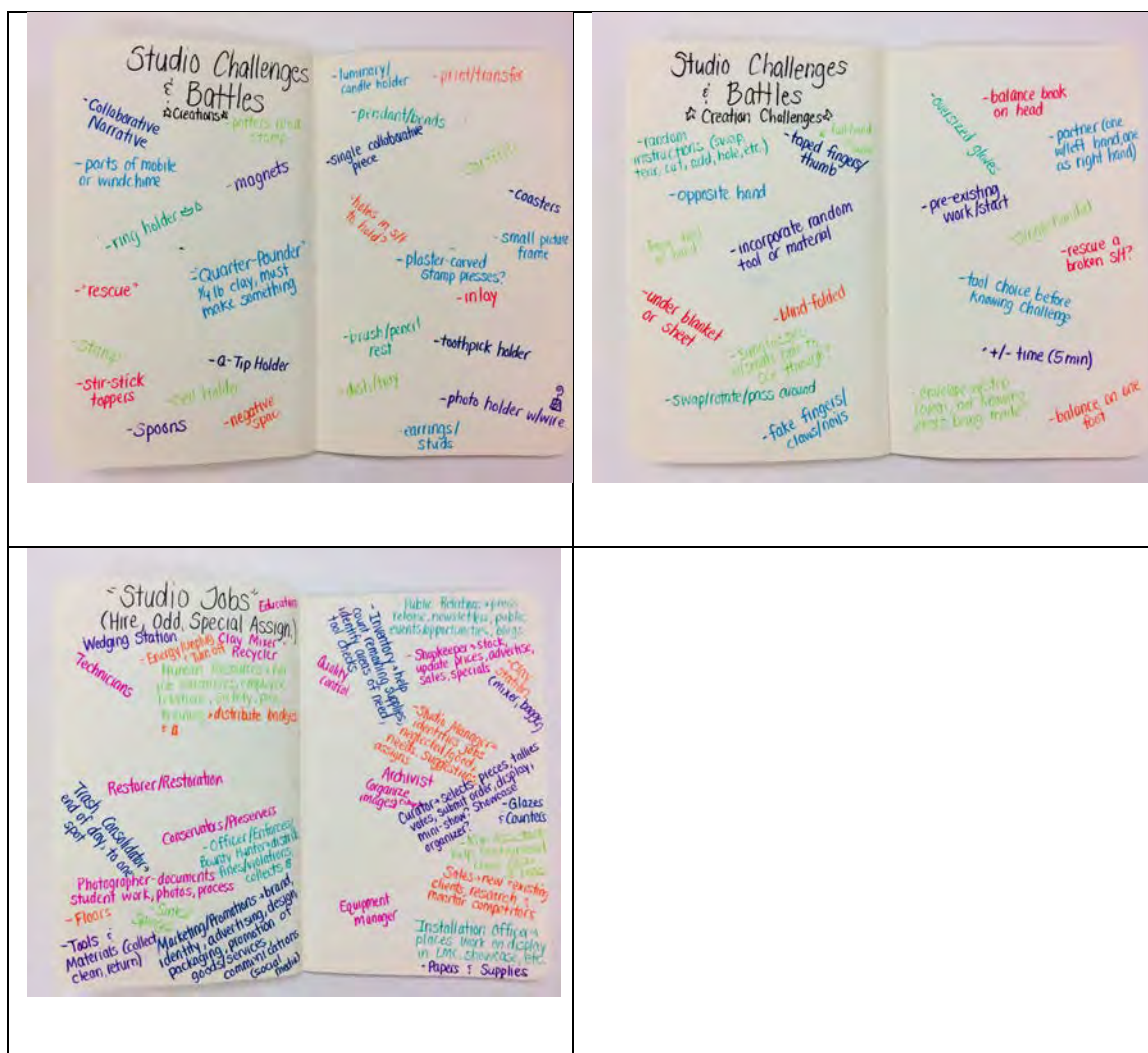 Studio Challenges
& Battles
☆Creations☆
-Collaborative
Narrative
-parts of mobile
or windchime
-magnets
-ring holder
-"Quarter-Pounder"
1/4 lb clay, must
make something
-"rescue"
-stamp
-Q-Tip Holder
-stir-stick
toppers
-cell holder
-spoons
-negative
spac
-luminary/
candle holder
-print/transfer
-pendant/beads
-single collaborative
piece
-coasters
-holes in s/t
to hold?
-small picture
frame
-plaster-carved
stamp presses?
-inlay
-brush/pencil
rest
-toothpick holder
-dish/tray
-photo holder w/wire
-earrings/
studs
Studio Challenges
& Battles
☆Creation Challenges☆
-random
instructions (swap,
tear, cut, add, hole, etc.)
-taped fingers/
thumb
-opposite hand
-incorporate random
tool or material
-under blanket
or sheet
-blind-folded
-swap/rotate/pass around
-fake fingers/
claws/nails
-oversized gloves
-balance book
on head
-partner (one
w/left hand, one
as right hand)
-pre-existing
work/start
-single-handed
-rescue a
broken s/t?
-tool choice before
knowing challenge
-+/- time (5 min)
-balance on one
foot
"Studio Jobs"
(Hire, Odd, Special Assign.)
Education
Wedging Station
-Energy/unplug
Turn off
Clay Mixer
Recycler
Technicians
Human Resources
-distribute badges
Restorer/Restoration
Trash Consolidator→
end of day, to one
spot
Conservators/Preservers
-Officer/Enforcer/
Bounty Hunter→distrib.
fines/violations,
collects
Photographer-documents
student work, photos, process
-Floors
-Tools &
Materials (called
clean, return)
Marketing/Promotions→brand
identity, advertising, design,
packaging, promotion of
goods/services
communications
(social media)
Public Relations→press
release, newsletters, public
events/opportunities, blogs
-Inventory→help
count remaining supplies,
identify areas of need,
tool checks
Quality
Control
-Shopkeeper→stock,
update prices, advertise,
sales, specials
-Clay
Station
(mixer, bagger)
-Studio Manager→
identifies jobs
neglected/good,
needs, suggestions,
assigns
Archivist
(organize
images)
Curator→selects pieces, tallies
votes, submit order, display,
mini-show? Showcase
organizer?
-Glazes
& Counters
Sales→new & existing
clients, research &
monitor competitors
Equipment
manager
Installation Officer→
places work on display
in LMC, showcase, etc.
-Papers & Supplies